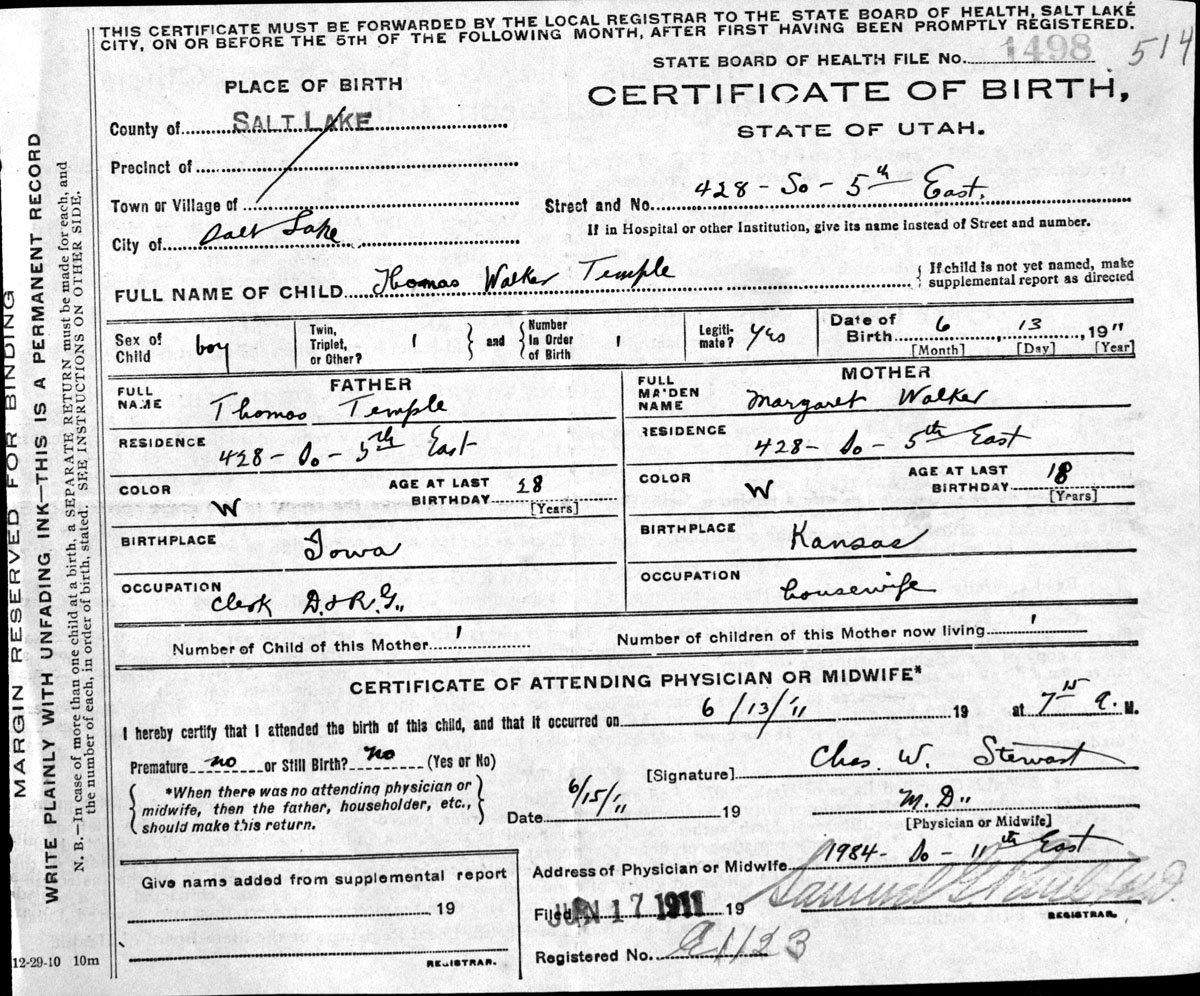 THIS CERTIFICATE MUST BE FORWARDED BY THE LOCAL REGISTRAR TO THE STATE BOARD OF HEALTH, SALT LAKE
CITY, ON OR BEFORE THE 5TH OF THE FOLLOWING MONTH, AFTER FIRST HAVING BEEN PROMPTLY REGISTERED.
STATE BOARD OF HEALTH FILE No. 1498 514
PLACE OF BIRTH
CERTIFICATE OF BIRTH,
STATE OF UTAH.
County of SALT LAKE
Precinct of
Town or Village of
Street and No. 428 - So - 5th East.
City of Salt Lake
If in Hospital or other Institution, give its name instead of Street and number.
FULL NAME OF CHILD Thomas Walker Temple
{ If child is not yet named, make
supplemental report as directed
Sex of Child boy
Twin, Triplet, or Other? 1
} and {
Number In Order of Birth 1
Legiti-mate? Yes
Date of Birth 6, 13, 1911
[Month] [Day] [Year]
FATHER
FULL NAME Thomas Temple
RESIDENCE 428 - So - 5th East
COLOR W
AGE AT LAST BIRTHDAY 28 [Years]
BIRTHPLACE Iowa
OCCUPATION Clerk D & R.G.
MOTHER
FULL MAIDEN NAME Margaret Walker
RESIDENCE 428 - So - 5th East
COLOR W
AGE AT LAST BIRTHDAY 18 [Years]
BIRTHPLACE Kansas
OCCUPATION housewife
Number of Child of this Mother 1
Number of children of this Mother now living 1
CERTIFICATE OF ATTENDING PHYSICIAN OR MIDWIFE*
I hereby certify that I attended the birth of this child, and that it occurred on 6/13/'11 19 at 7 15 a. M.
Premature no or Still Birth? no (Yes or No)
[Signature] Chas. W. Stewart
{ *When there was no attending physician or
midwife, then the father, householder, etc.,
should make this return. }
Date 6/15/11 19
M.D.
[Physician or Midwife]
Address of Physician or Midwife 1984 - So - 11th East
Give name added from supplemental report
19
REGISTRAR.
Filed JUN 17 1911 19
Samuel G. Paul
REGISTRAR.
Registered No. a1123
12-29-10 10m
MARGIN RESERVED FOR BINDING
WRITE PLAINLY WITH UNFADING INK—THIS IS A PERMANENT RECORD
N. B.—In case of more than one child at a birth, a SEPARATE RETURN must be made for each, and
the number of each, in order of birth, stated. SEE INSTRUCTIONS ON OTHER SIDE.